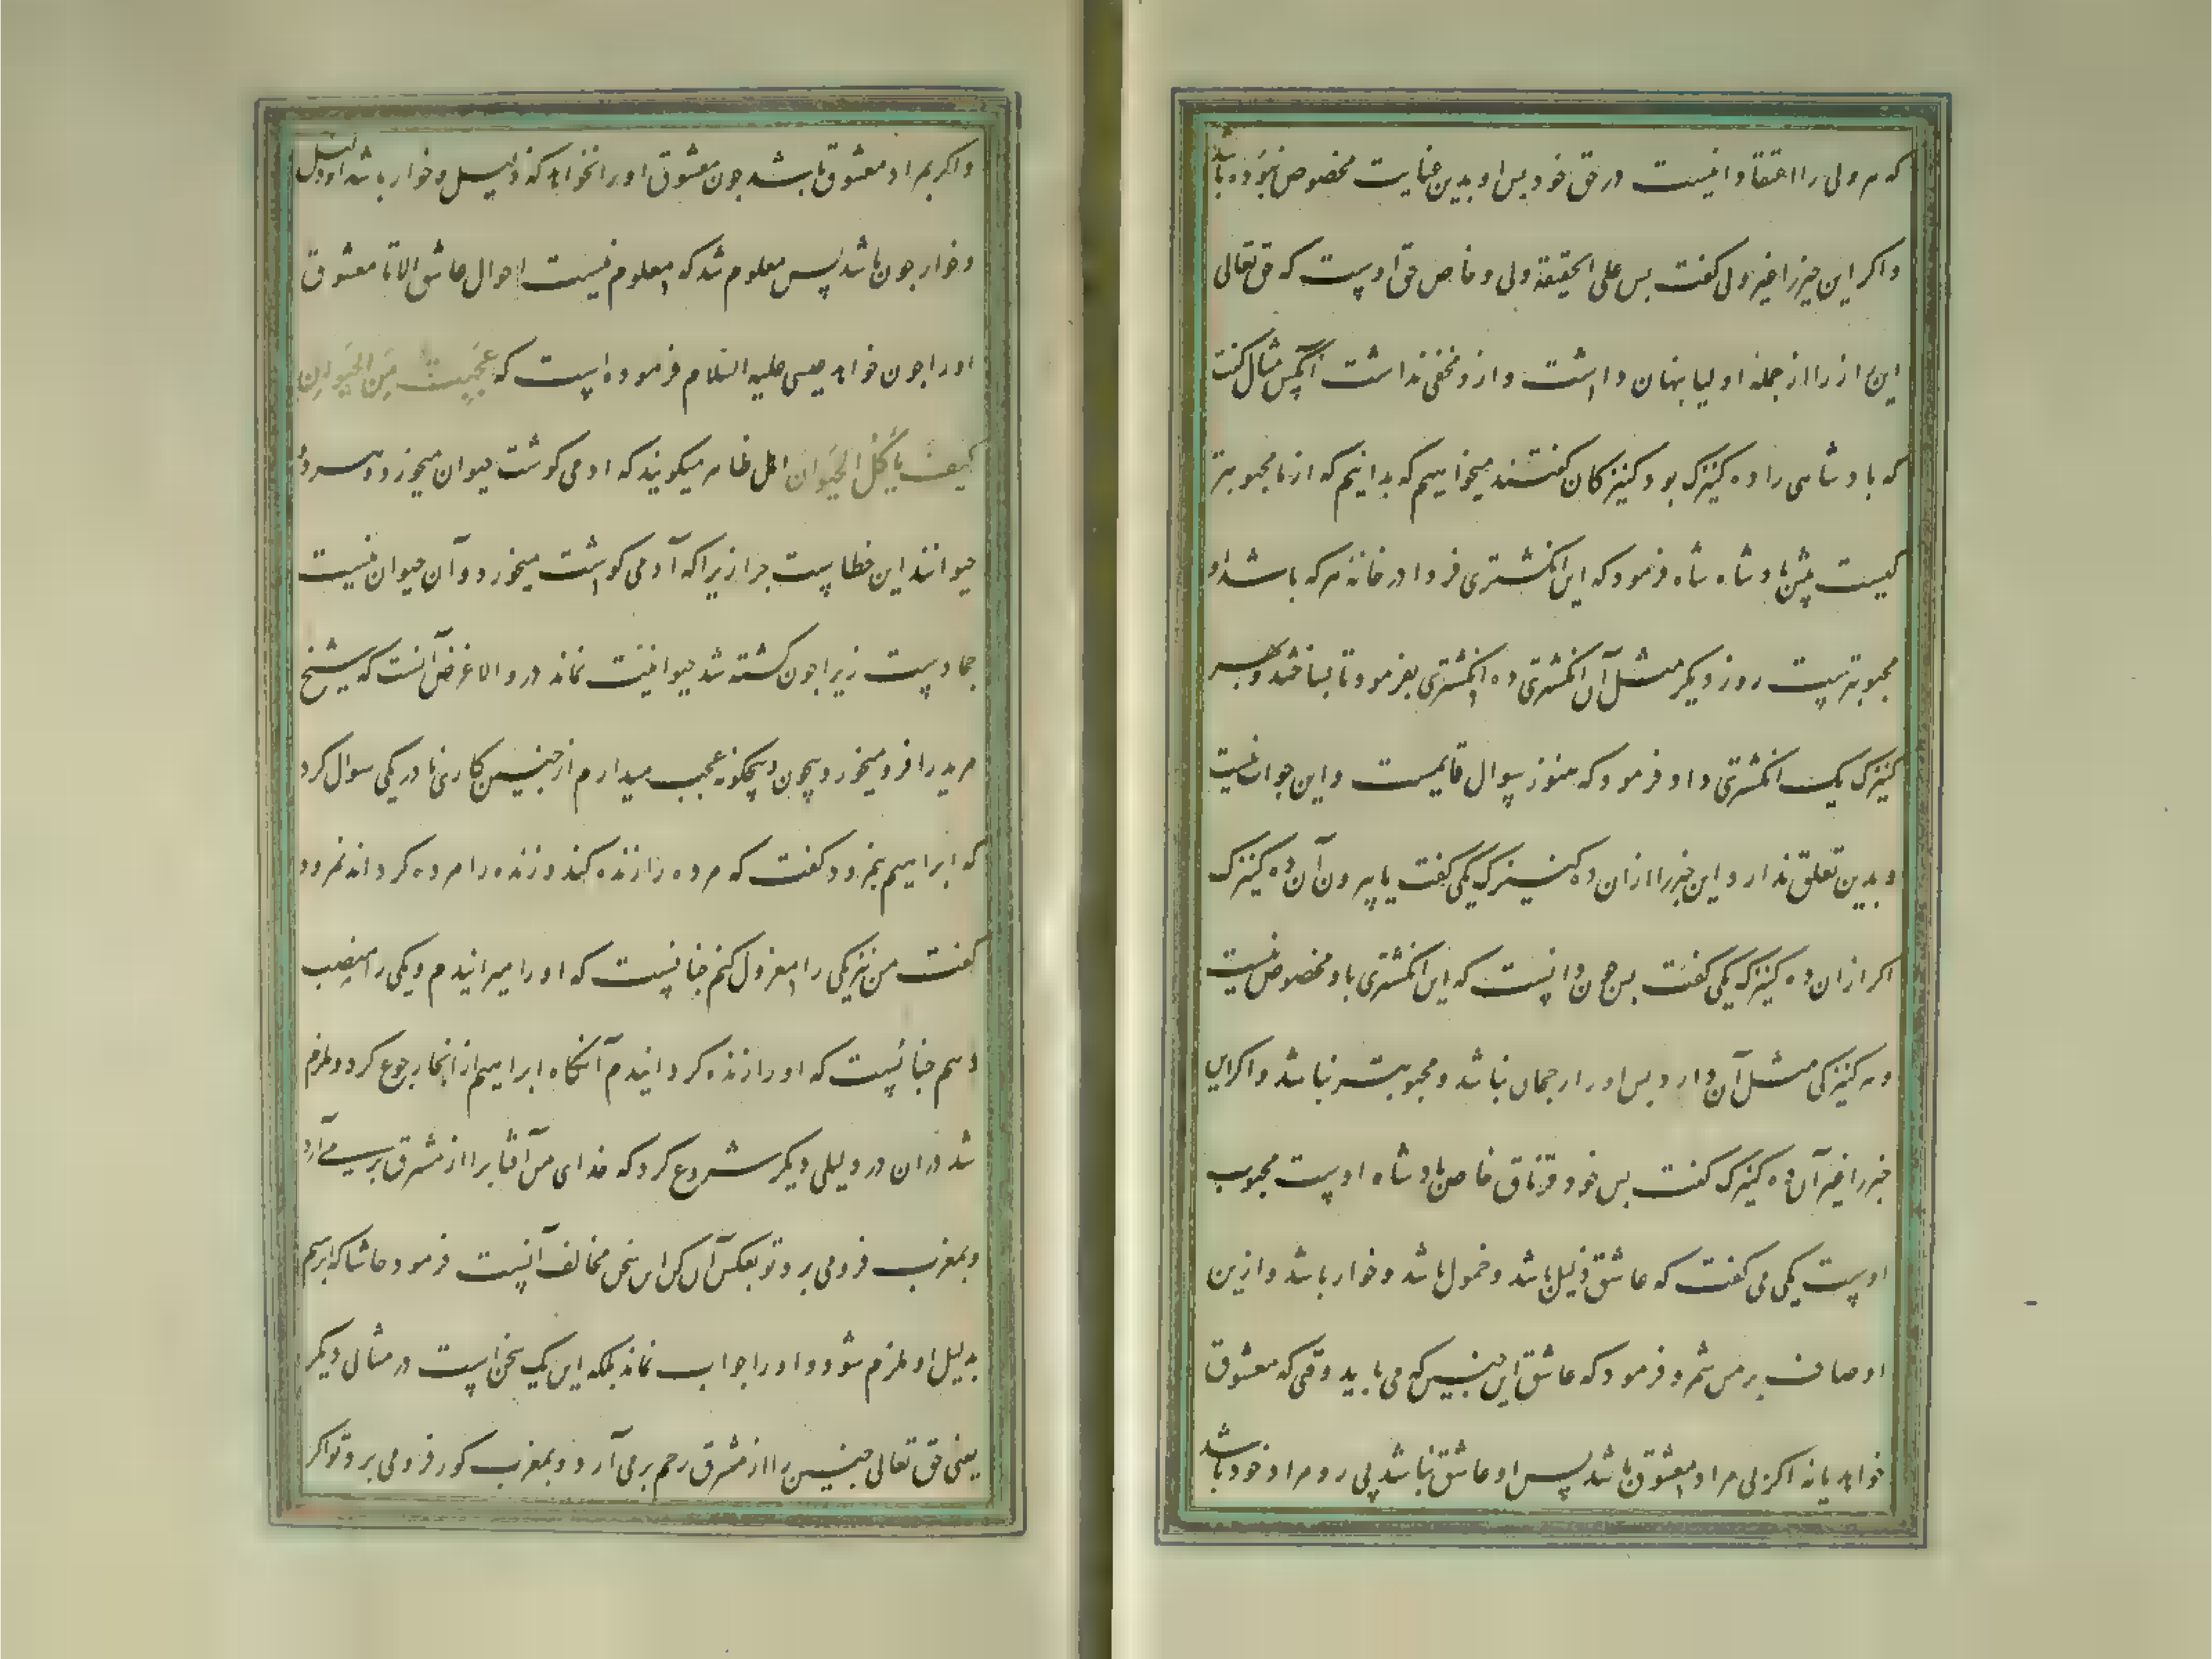 که هر ولی را اعتقاد اینست در حق خود پس او بدین عنایت مخصوص نبوده باشد
واکر این خبر را غیر ولی کفت پس علی الحقیقة ولی و خاص حق اوست که حق تعالی
این راز را از جمله اولیا پنهان داشت و ازو مخفی نداشت آنکس مثال کفت
که پادشاهی را ده کنیزک بود کنیزکان کفتند میخواهیم که بدانیم که از ما محبوبتر
کیست پیش پادشاه شاه فرمود که این انکشتری فردا در خانهٔ هر که باشد او
محبوبترست روز دیکر مثل آن انکشتری ده انکشتری بفرمود تا بساختند و بهر
کنیزک یک انکشتری داد فرمود که هنوز سوال قایمست و این جواب نیست
و بدین تعلق ندارد این خبر را از ان ده کنیزک یکی کفت یا بیرون آن ده کنیزک
اکر از ان ده کنیزک یکی کفت پس چون دانست که این انکشتری باو مخصوص نیست
و هر کنیزکی مثل آن دارد پس او را رجحان نباشد و محبوبتر نباشد و اکر این
خبر را غیر آن ده کنیزک کفت پس خود قرناق خاص پادشاه اوست محبوب
اوست یکی می کفت که عاشق ذلیل باشد و خمول باشد و خوار باشد و ازین
اوصاف بر می شمرد فرمود که عاشق این چنین که می باید وقتی که معشوق
خواهد یا نه اکر بی مراد معشوق باشد پس او عاشق نباشد پی رو مراد خود باشد
واکر بمراد معشوق باشد چون معشوق او را نخواهد که ذلیل و خوار باشد او ذلیل
و خوار چون باشد پس معلوم شد که معلوم نیست احوال عاشق الا تا معشوق
او را چون خواهد عیسی علیه السلام فرموده است که عَجِبْتُ مِنَ الحَیَوانِ
کَیفَ یَأکُلُ الحَیَوانَ اهل ظاهر میکویند که ادمی کوشت حیوان میخورد و هر دو
حیوانند این خطاست چرا زیرا که آدمی کوشت میخورد و آن حیوان نیست
جمادست زیرا چون کشته شد حیوانیت نماند درو الا غرض آنست که شیخ
مرید را فرو میخورد بیچون و بیچکونه عجب میدارم از چنین کاری نادر یکی سوال کرد
که ابراهیم بنمرود کفت که مرده را زنده کند و زنده را مرده کرداند نمرود
کفت من نیز یکی را معزول کنم چنانست که او را میرانیدم و یکی را منصب
دهم چنانست که او را زنده کردانیدم آنکاه ابراهیم از آنجا رجوع کرد و ملزم
شد دران در دلیلی دیکر شروع کرد که خدای من آفتاب را از مشرق بر می آرد
و بمغرب فرو می برد تو بعکس آن کن این سخن مخالف آنست فرمود حاشا که ابراهیم
بدلیل او ملزم شود و او را جواب نماند بلکه این یک سخن است در مثالی دیکر
یعنی حق تعالی جنین را از مشرق رحم بر می آرد و بمغرب کور فرو می برد تو اکر